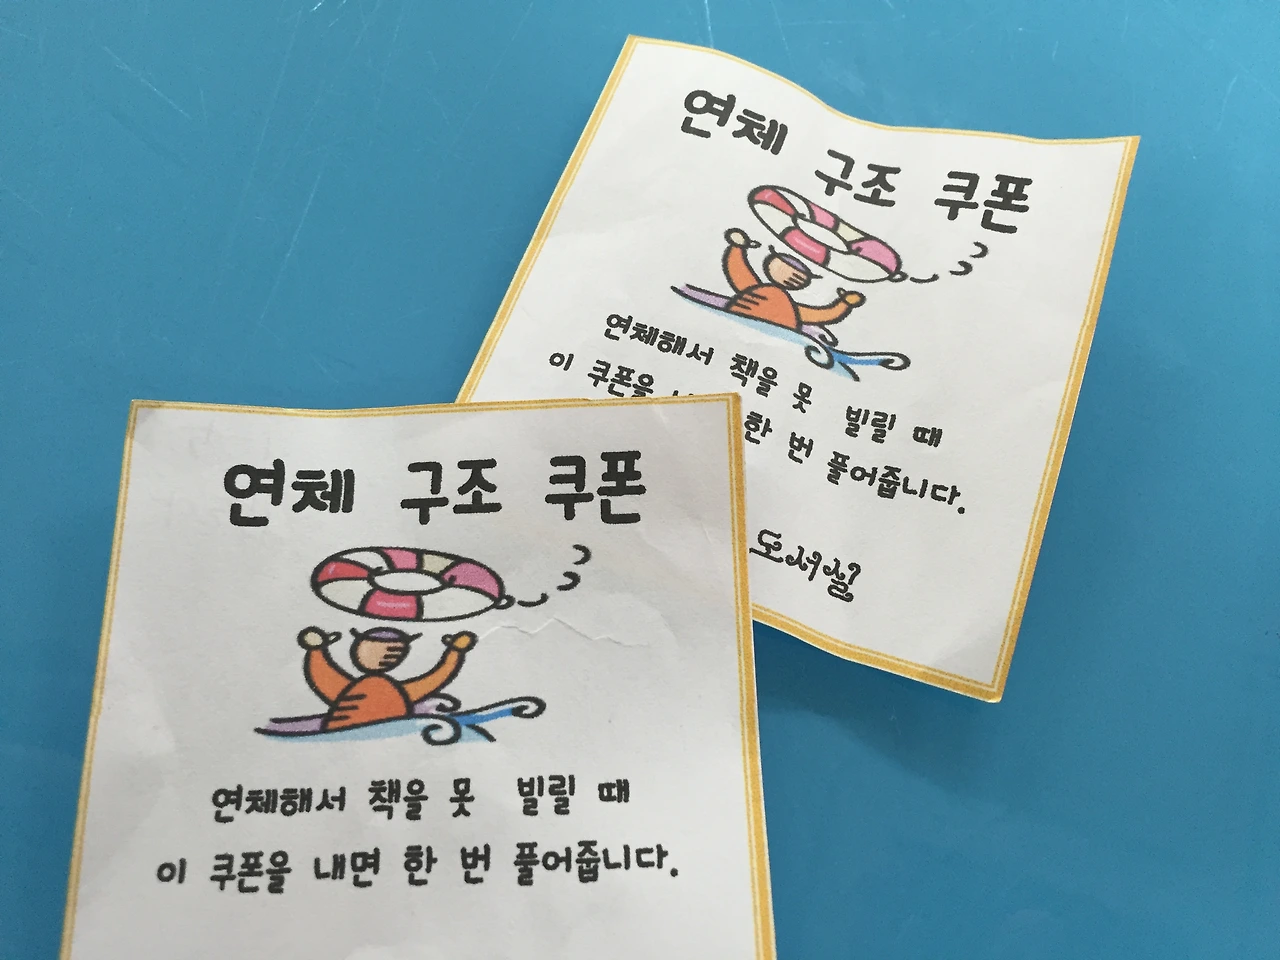 연체 구조 쿠폰
연체해서 책을 못 빌릴 때
이 쿠폰을 내면 한 번 풀어줍니다.
연체 구조 쿠폰
연체해서 책을 못 빌릴 때
이 쿠폰을 한 번 풀어줍니다.
도서실